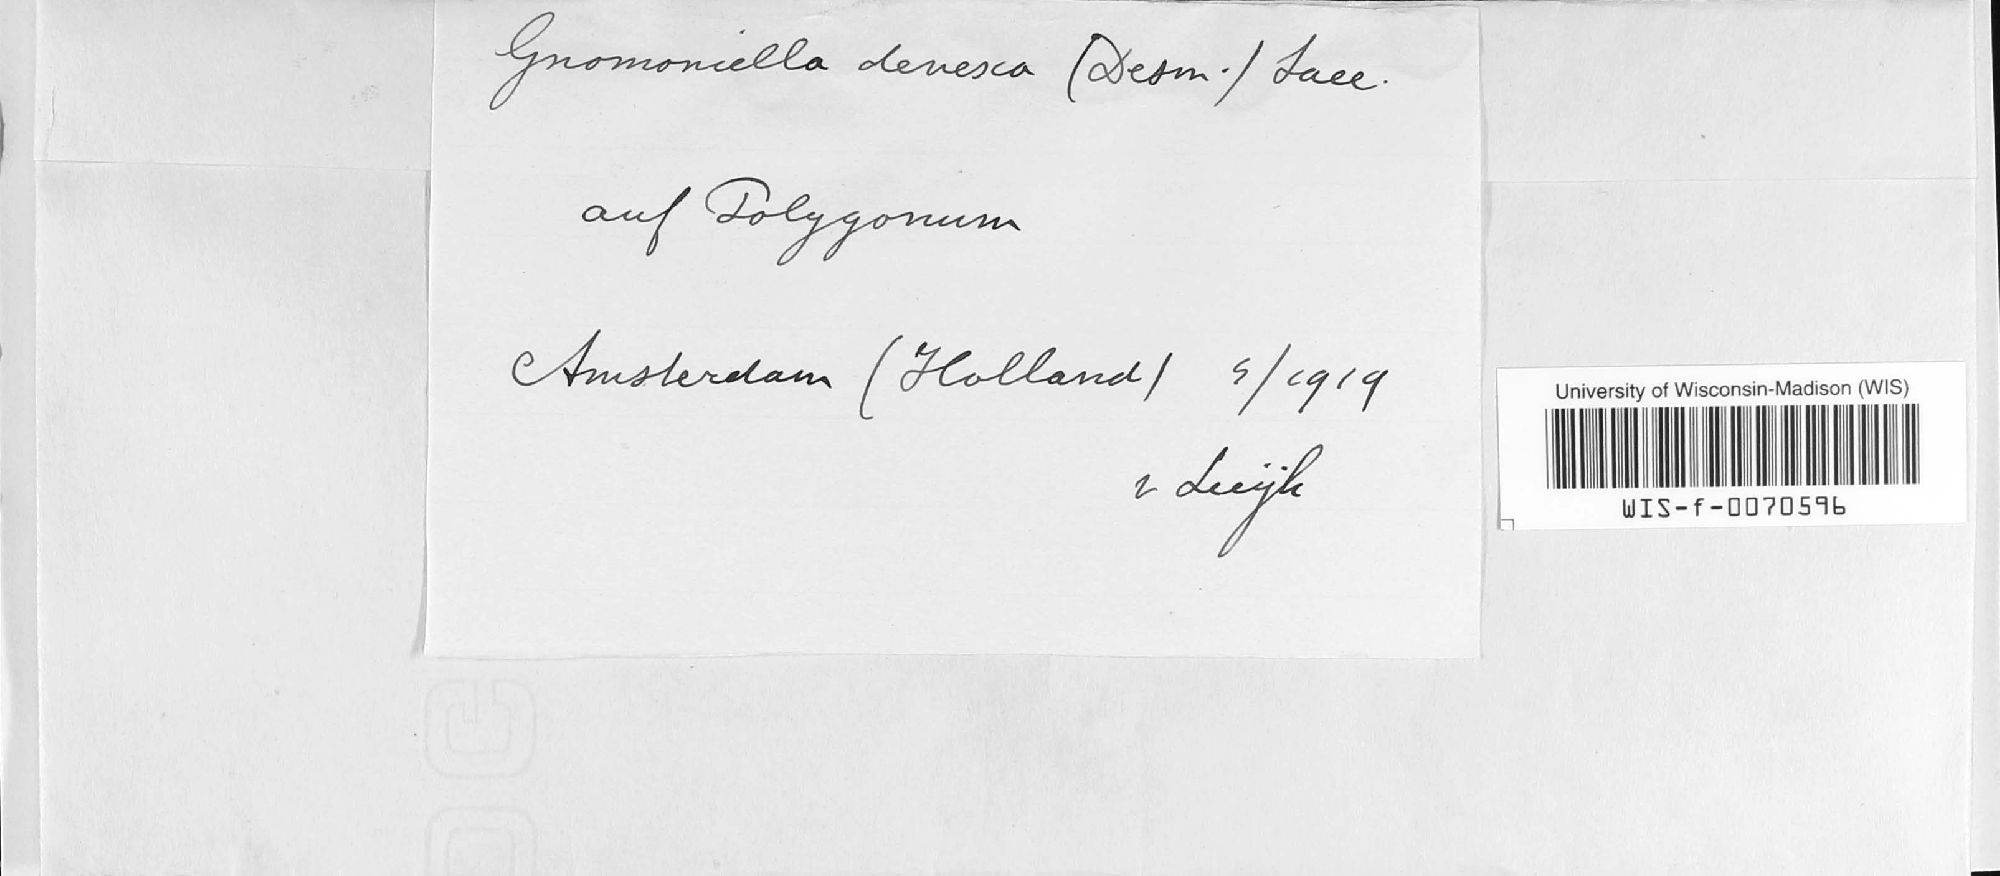 Gnomoniella devexa (Desm.) Sacc.
auf Polygonum
Amsterdam (Holland) 5/1919
v Luijk
University of Wisconsin-Madison (WIS)
WIS-f-0070596